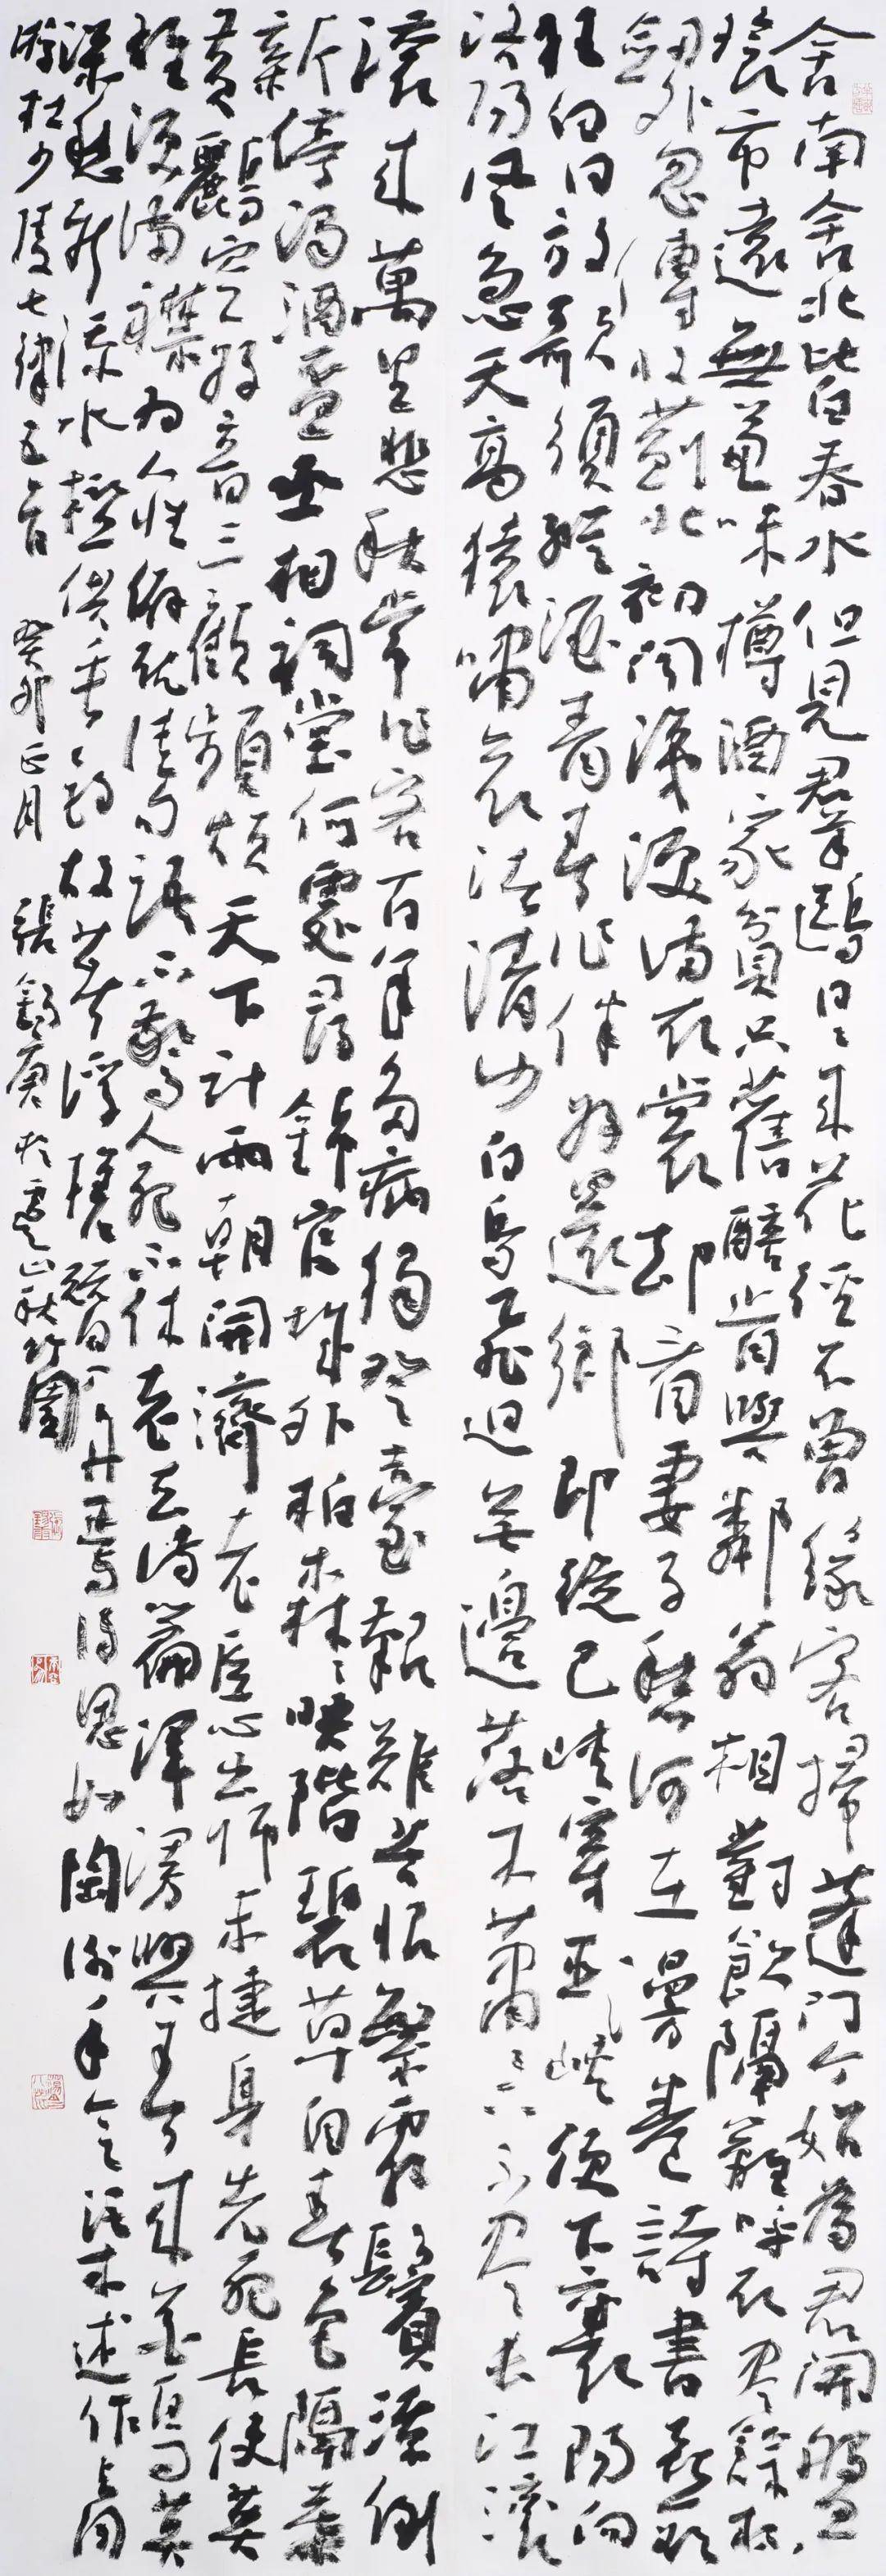 舍南舍北皆春水但見群鷗日日來花徑不曾緣客掃蓬門今始為君開盤
飧市遠無兼味樽酒家貧只舊醅肯與鄰翁相對飲隔籬呼取盡餘杯
劍外忽傳收薊北初聞涕淚滿衣裳却看妻子愁何在漫卷詩書喜欲
狂白日放歌須縱酒青春作伴好還鄉即從巴峽穿巫峽便下襄陽向
洛陽風急天高猿嘯哀渚清沙白鳥飛迴無邊落木蕭蕭下不盡長江滾
滾來萬里悲秋常作客百年多病獨登臺艱難苦恨繁霜鬢潦倒
新停濁酒盃丞相祠堂何處尋錦官城外柏森森映階碧草自春色隔葉
黃鸝空好音三顧頻煩天下計兩朝開濟老臣心出師未捷身先死長使英
雄淚滿襟為人性僻耽佳句語不驚人死不休老去詩篇渾漫與春來花鳥莫
深愁新添水檻供垂釣故著浮槎替入舟焉得思如陶謝手令渠述作與同
游杜少陵七律五首 癸卯正月 張錫庚於虞山秋竹園